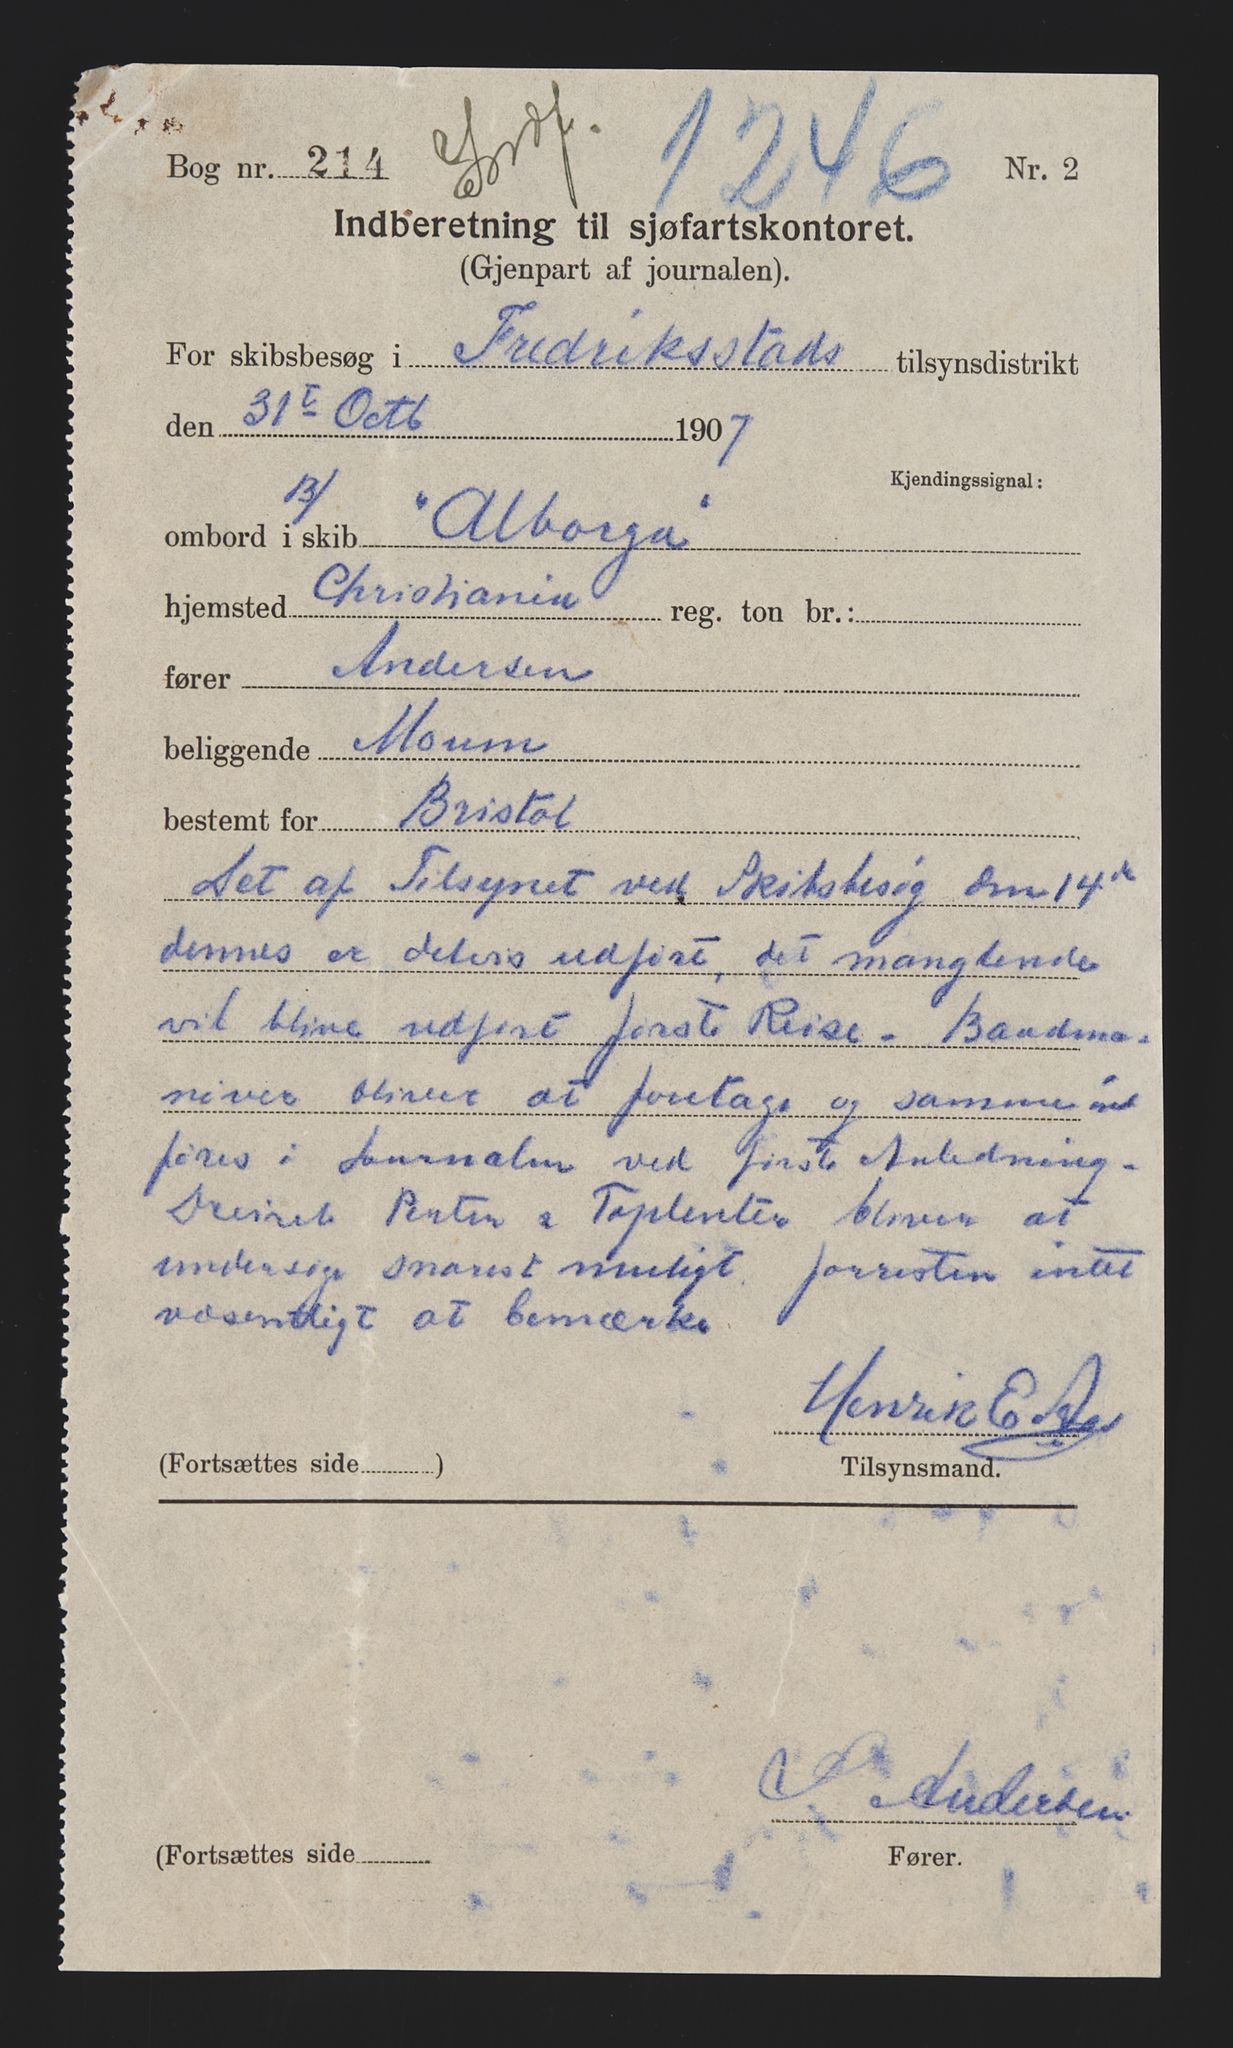 1246
Bog nr. 214 Nr. 2
Indberetning til sjøfartskontoret.
(Gjenpart af journalen).
For skibsbesøg i Fredriksstads tilsynsdistrikt
den 31t Octb 1907
Kjendingssignal:
B/
ombord i skib "Alborga"
hjemsted Christiania reg. ton br.:
fører Andersen
beliggende Moum
bestemt for Bristol
Det af Tilsynet ved Skibsbesøg den 14de
dennes er delvis udført, det manglende
vil blive udført første Reise - Baadma-
növer bliver at foretage og samme ind
føres i Journalen ved første Anledning -
Perter & Toplenter bliver at
undersøge snarest muligt. forresten intet
væsentligt at bemærke
Henrik E
(Fortsættes side )
Tilsynsmand.
Andersen
(Fortsættes side
Fører.